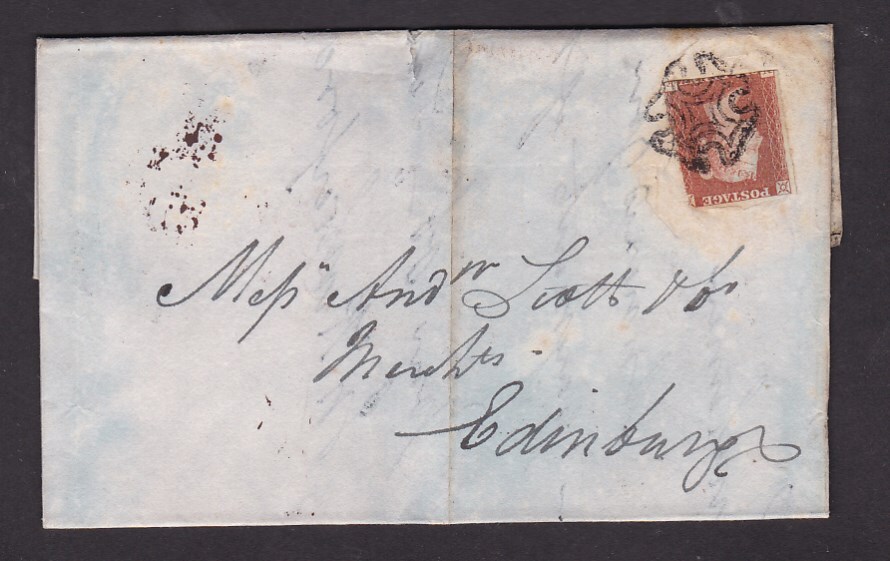 POSTAGE
Messrs Andw Scott & Co
Merchts
Edinburgh